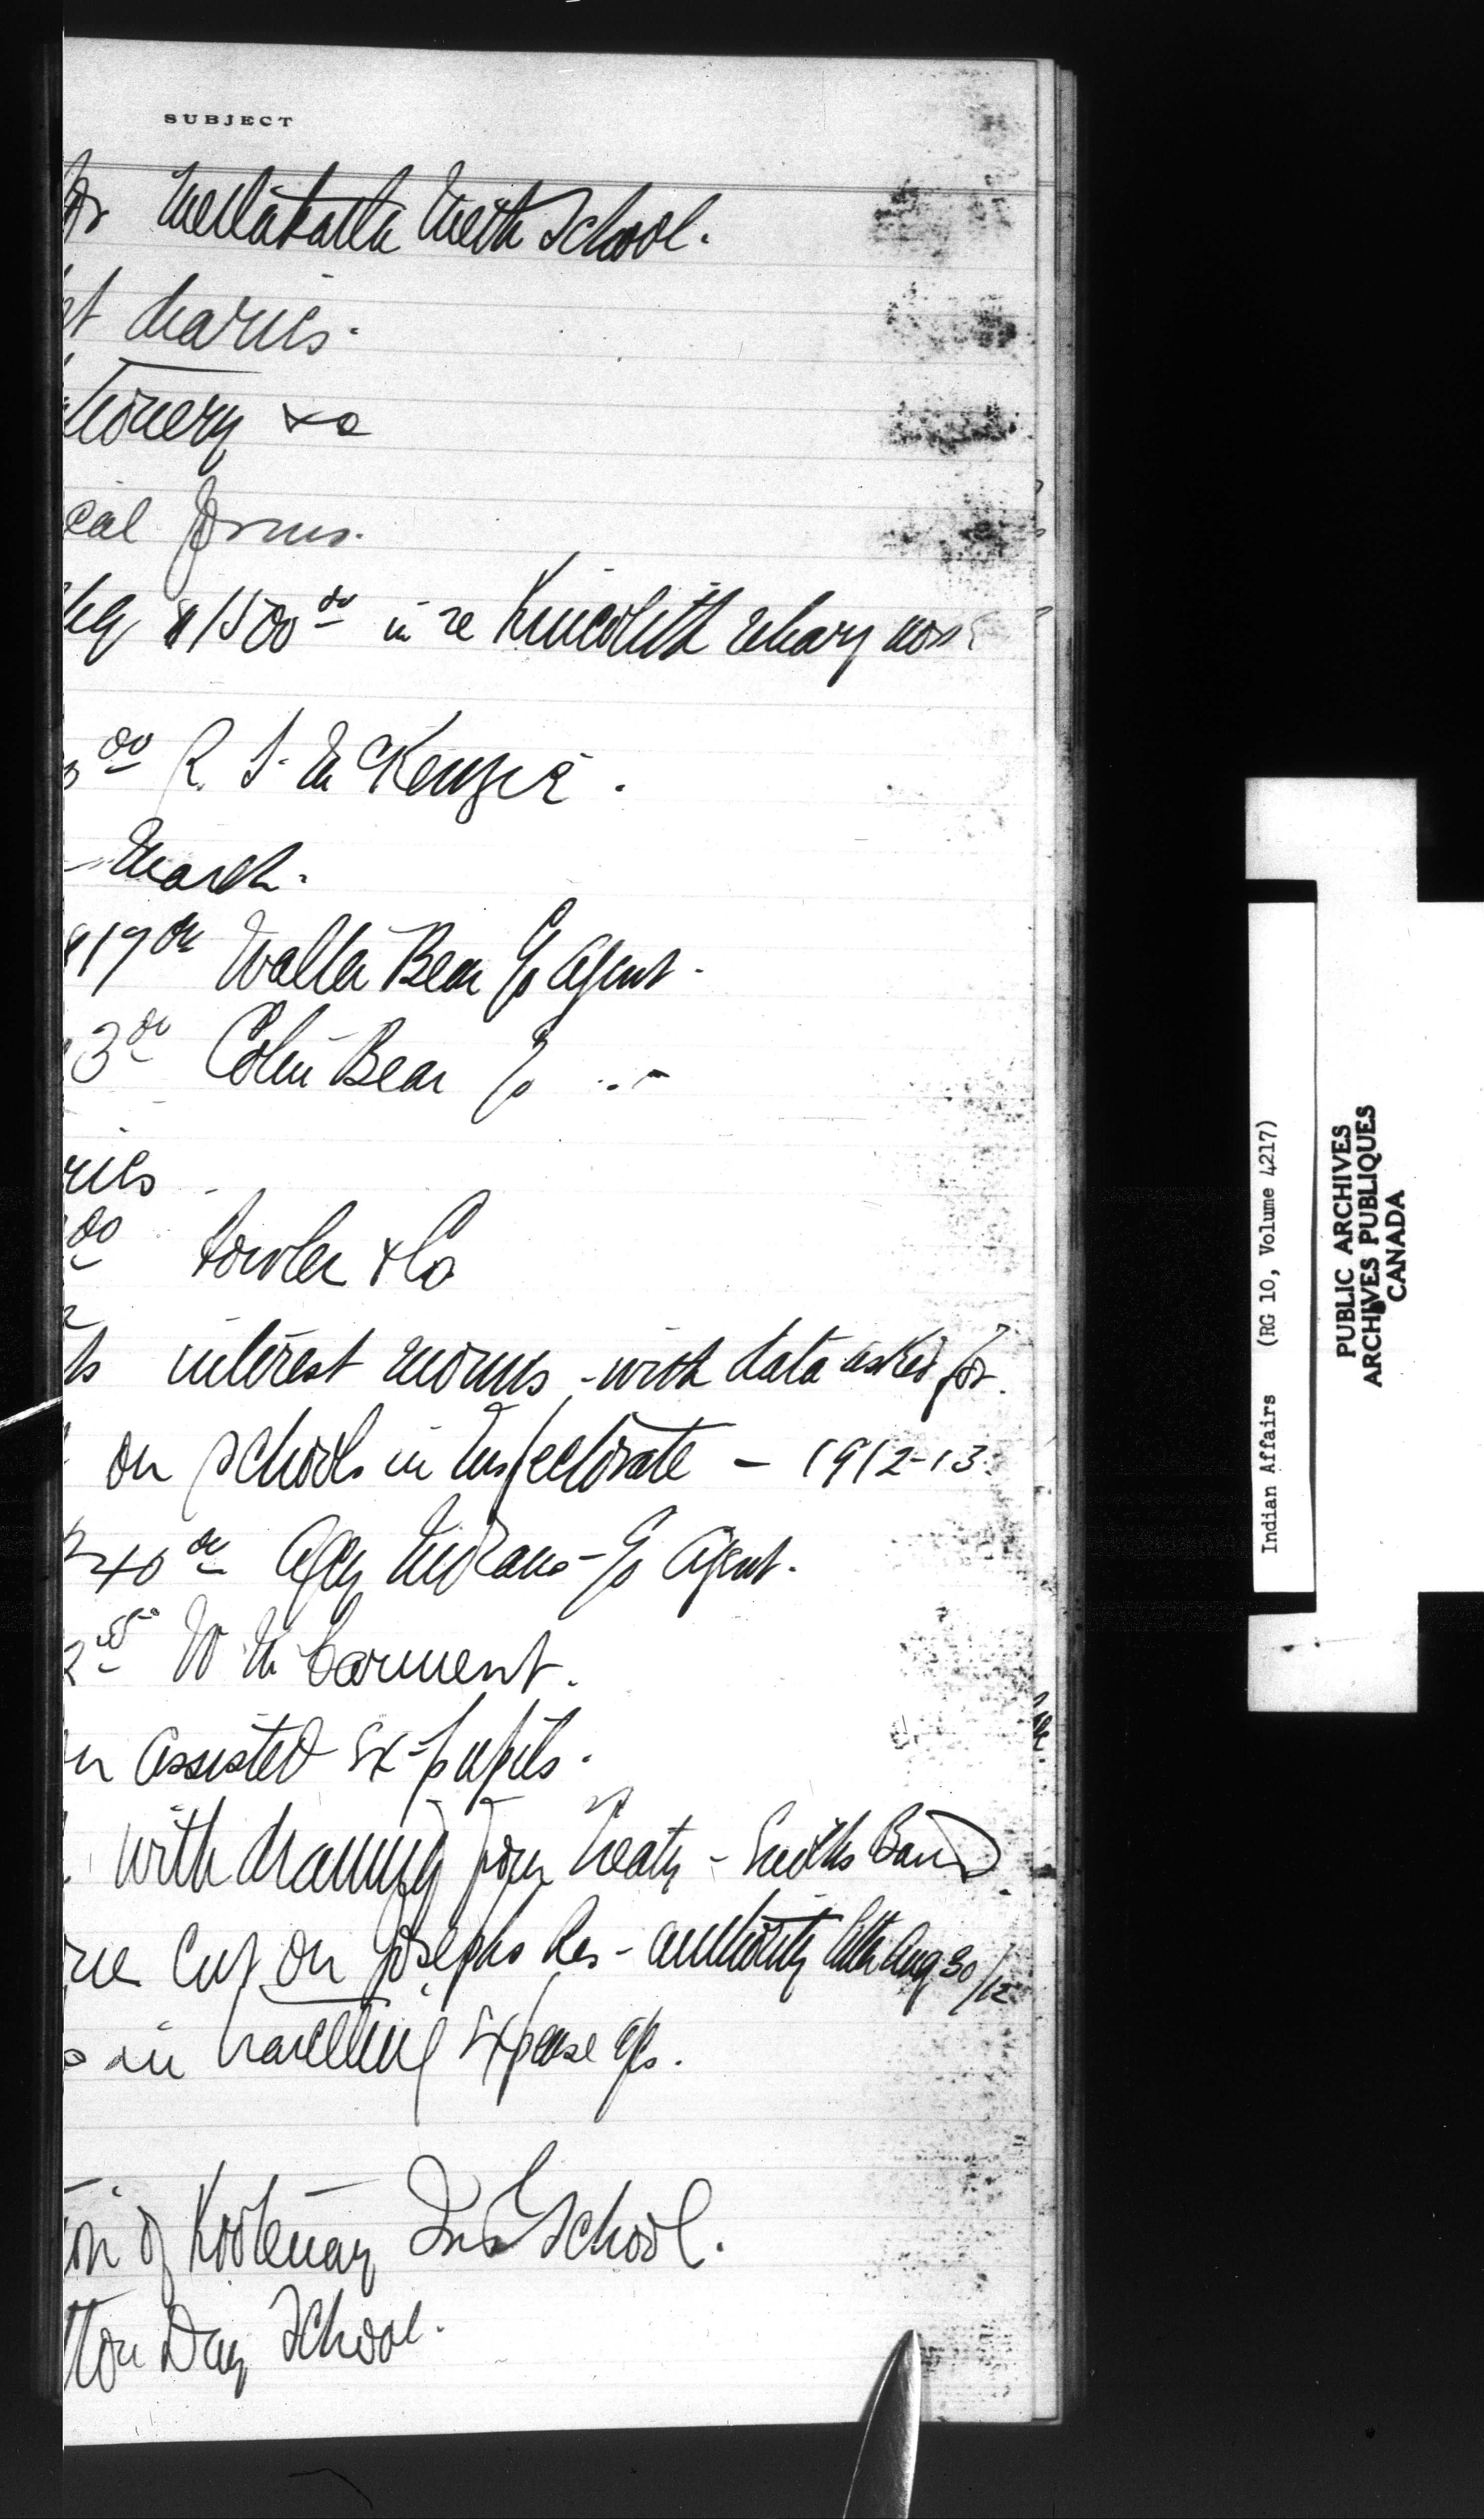 SUBJECT
for Metlakatla Meth School.
st diaries.
tionery &c
cial forms.
chq $1500 00 in re Kincolith
00 R. S. McKenzie.
- March.
$17 00 Walter Bear % Agent -
3 00 Colin Bear % " -
ries
00 Fowler & Co
ts interest monies - with data asked for.
on schools in Inspectorate - 1912-13.
40 00 Agcy Indians - % Agent.
2 55 W M Carment.
on assisted Ex-pupils.
with drawing from Treaty - Smiths Band
cut on Josephs Res - authority Aug 30/12
in travelling Expense a/cs.
ion of Kootenay Ind School.
tton Day School.
Indian Affairs (RG 10, Volume 4217)
PUBLIC ARCHIVES
ARCHIVES PUBLIQUES
CANADA